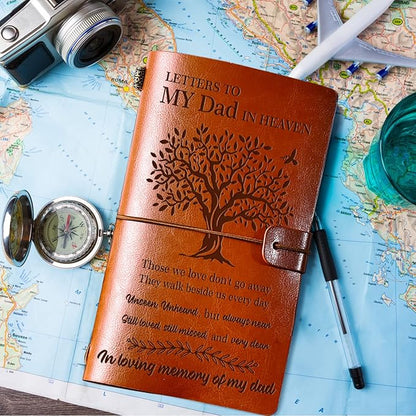 LETTERS TO
MY Dad IN HEAVEN
Those we love don't go away
They walk beside us every day
Unseen Unheard, but always near
Still loved, still missed and very dear
In loving memory of my dad